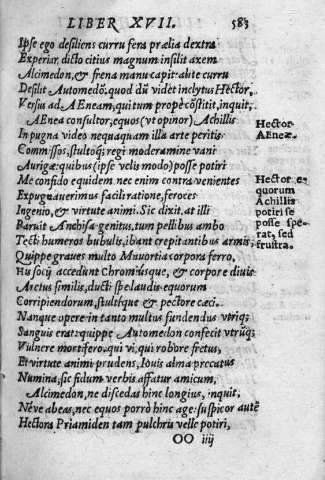 LIBER XVII. 583
Ipse ego desiliens curru fera prælia dextra
Experiar, dicto citius magnum insilit axem
Alcimedon, & frena manu capit: at e curru
Desilit Automedō. quod dū videt inclytus Hector,
Versus ad AEneam, qui tum propè cōstitit, inquit;
AEnea consultor; equos (vt opinor) Achillis
In pugna video nequaquam illa arte peritis
Commissos, stultoq; regi moderamine vani
Aurigæ: quibus (ipse velis modo) posse potiri
Me confido equidem nec enim contra venientes
Expugnauerimus facili ratione, feroces
Ingenio, & virtute animi. Sic dixit, at illi
Paruit Anchisa genitus, tum pellibus ambo
Tecti humeros bubulis, ibant crepitantibus armis,
Quippe graues multo Mauortia corpora ferro,
Hu socij accedunt Chromiusque, & corpore diuis
Aretus similis, ducti spe laudis equorum
Corripiendorum, stultique & pectore cæci.
Nanque opere in tanto multus fundendus vtriq;
Sanguis erat: quippe Automedon confecit vtrūq;
Vulnere mortifero. qui vi, qui robore fretus,
Et virtute animi prudens, Iouis alma precatus
Numina, sic fidum verbis affatur amicum,
Alcimedon, ne discedas hinc longius, inquit,
Néve abeas, nec equos porrò hinc age: suspicor autē
Hectora Priamiden tam pulchris velle potiri,
OO iiij
Hector
AEneæ.
Hector e-
quorum
Achillis
potiri se
posse spe-
rat, sed
frustra.